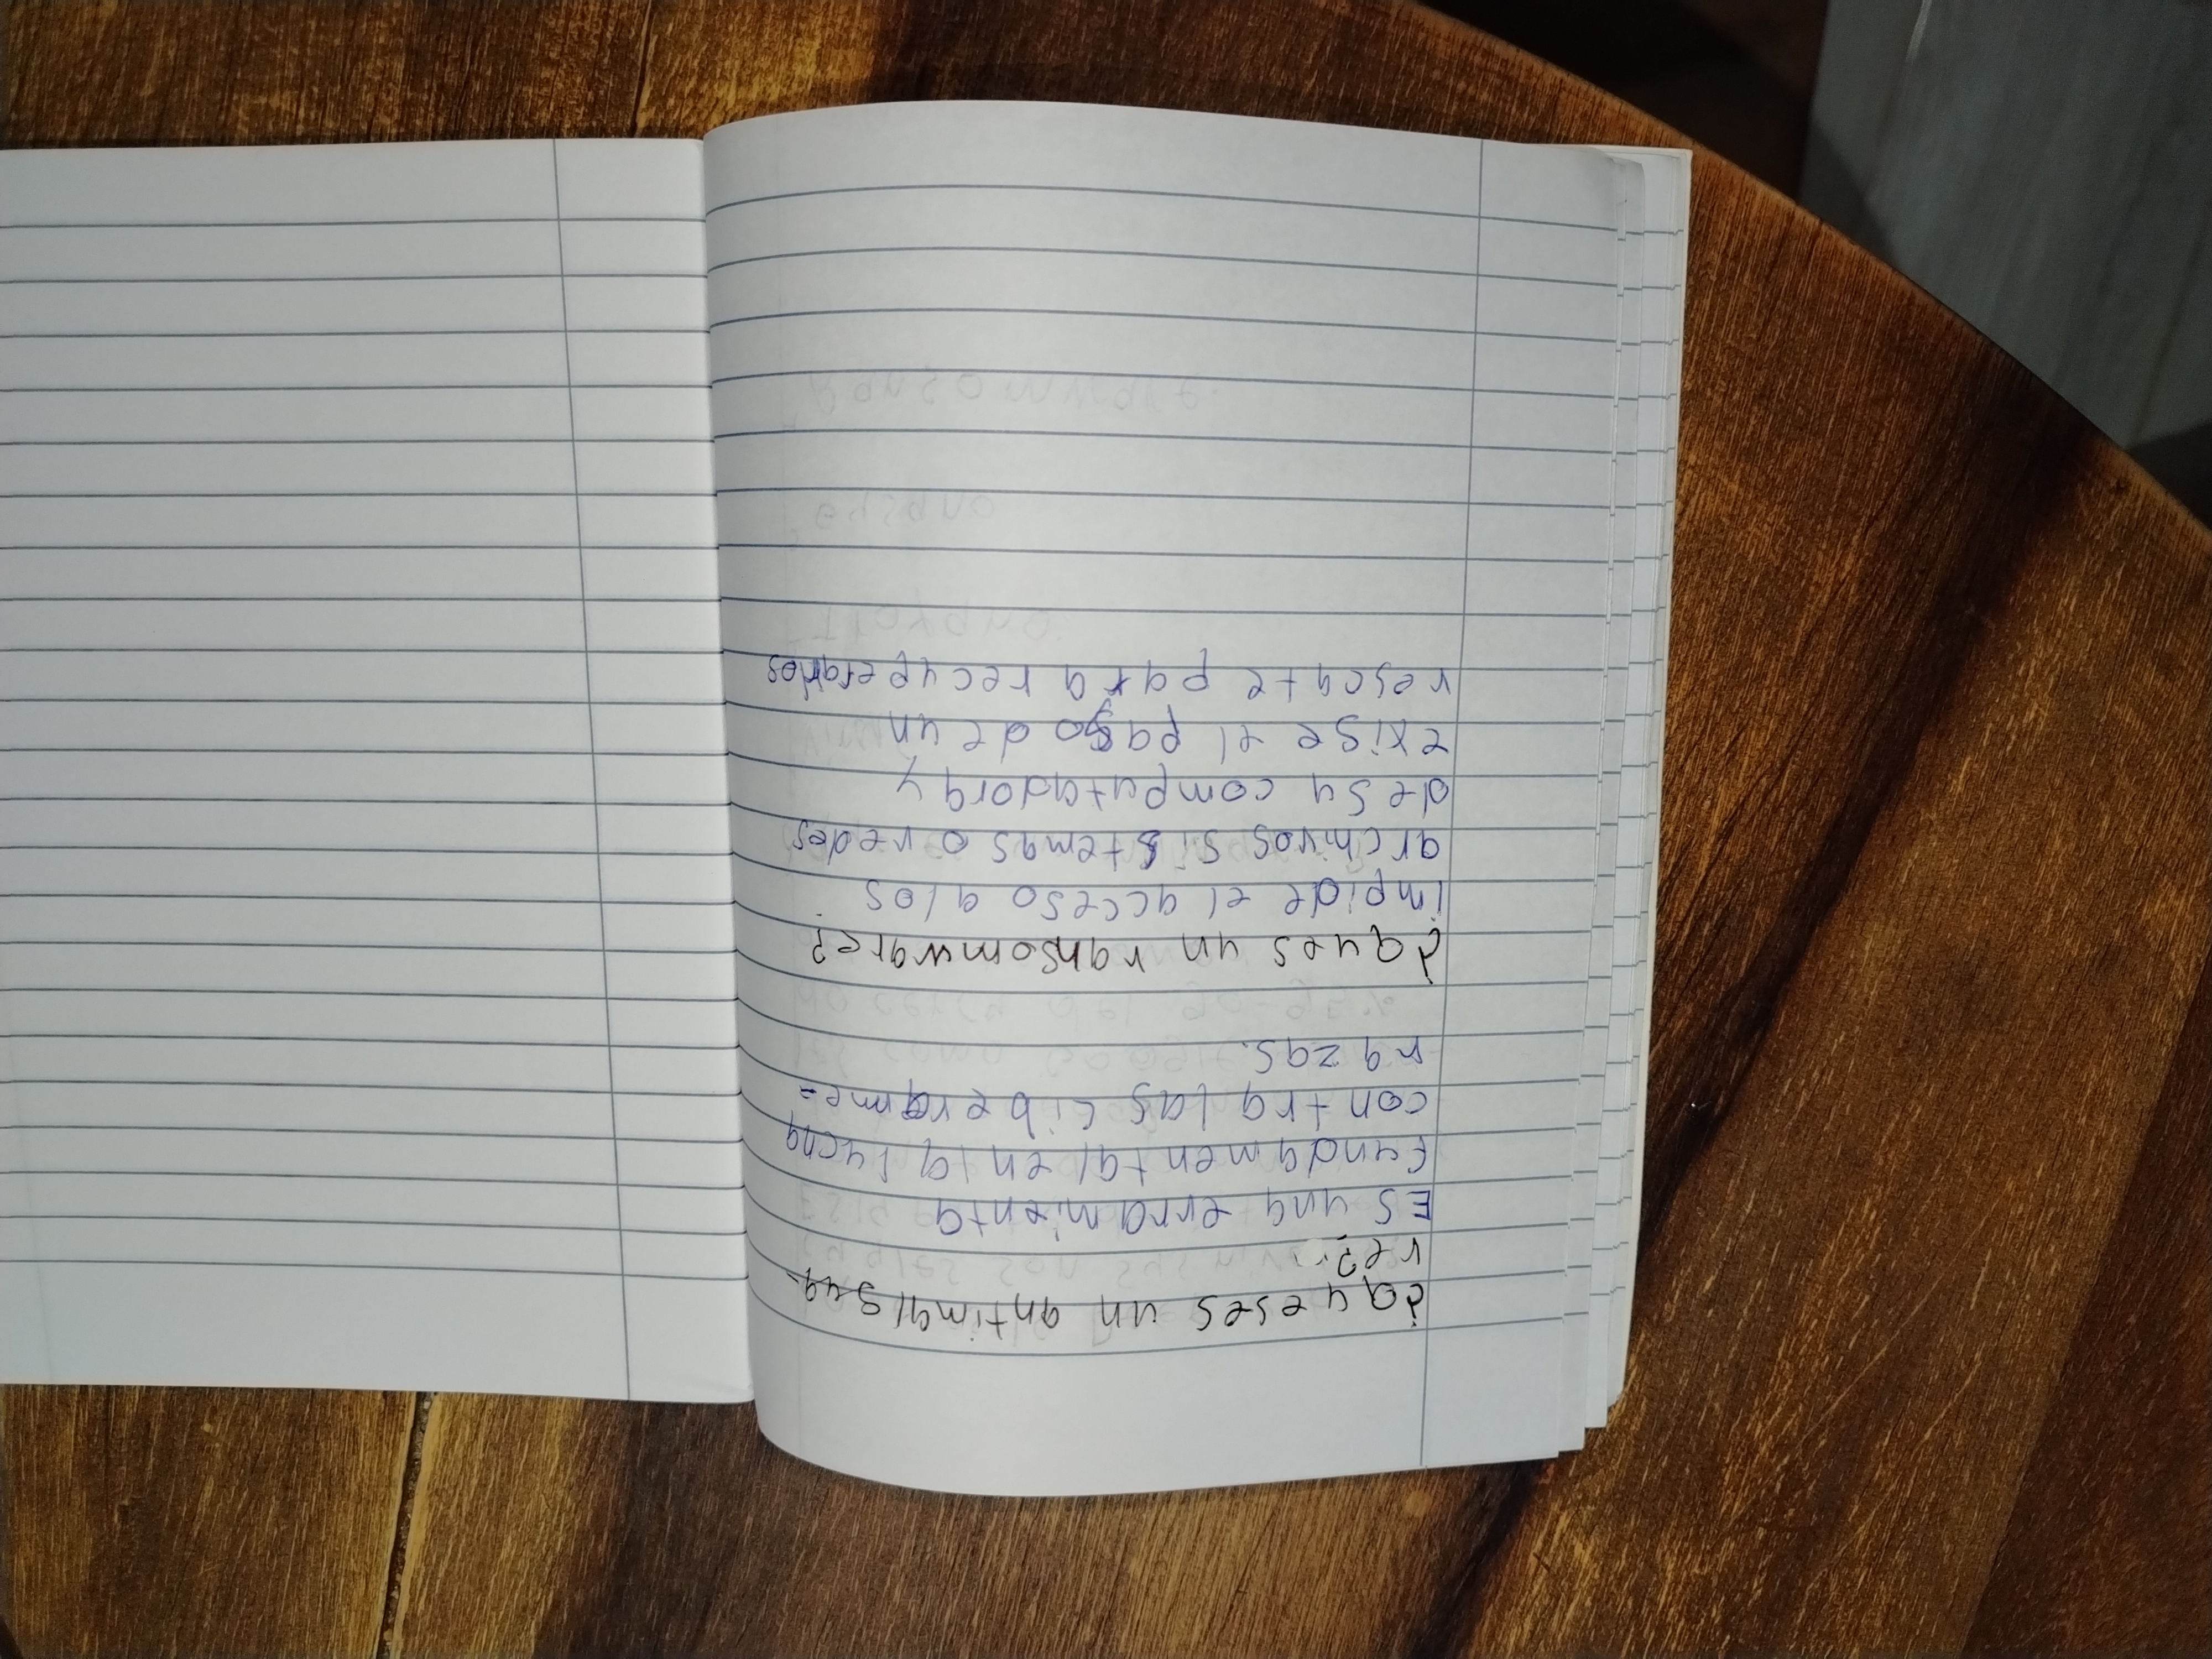 ¿qu eses un antimalgua-
re?
ES una erramienta
Fundamental enta lucna
contra las ciberame-
nazas.
¿ques un ransomware?
impide el acceso a los
archivos sistemas o redes
desu computadora y
exige el pago de un
rescate para recuperarlos